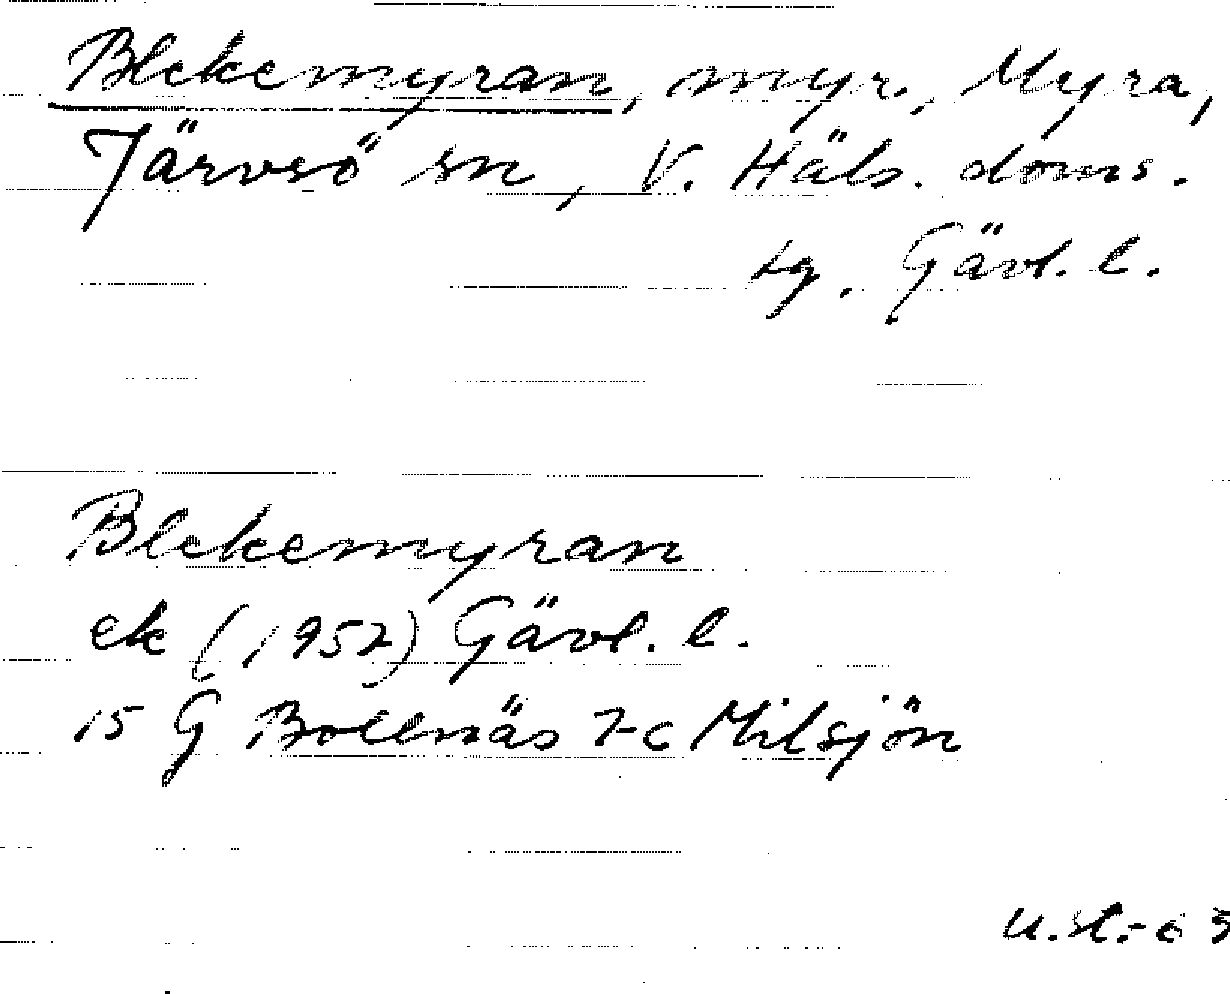 Blekemyran, myr, Myra,
Järvsö sn, V. Häls. doms.
tg. Gävl. l.
Blekemyran
ek (1952) Gävl. l.
15 G Bollnäs 7-c Milsjön
U.St.-63